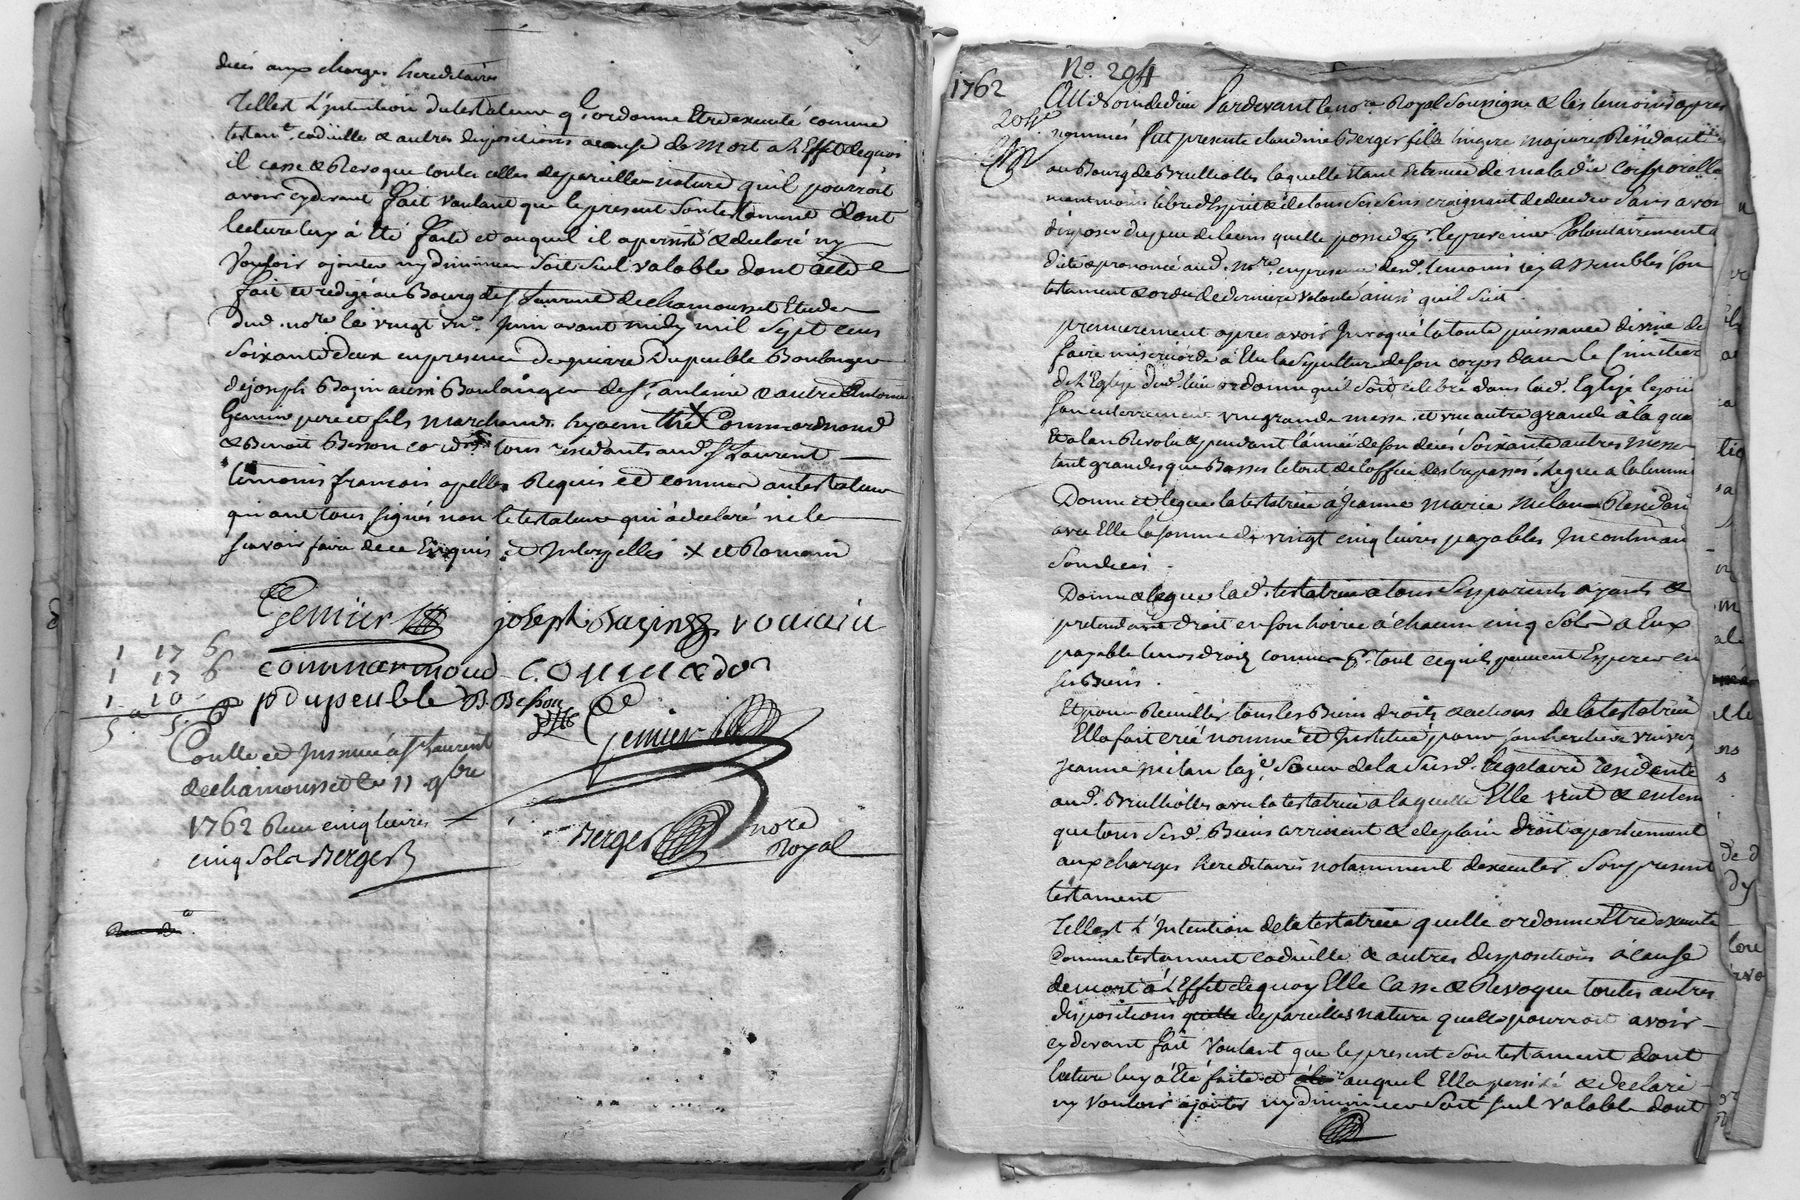 dicés aux charges hereditaires
Telle est L'jntention du testateur qu'il ordonne Etre executé comme
testamt. codicille & autres dispositions acause de Mort a L'Effet de quoi
il casse & Revoque toutes celles de pareille nature quil pourroit
avoir cydevant fait voulant que le present son testament dont
lecture luy á Eté faite et auquel il a persisté & declaré ny
Vouloir ajouter ny diminuer soit seul valable dont acte
fait et redigé au Bourg de St Laurent de chamousset Etude
dud. nore le vingt un juin avant midy mil sept cens
soixante deux en presence de pierre Dupeuble Boulanger
de joseph Bazin aussi Boulanger de St. antoine & autre Antoine
Gemier pere et fils marchands hyacinthe X Commarmond
& Benoit Besson cordr tous residants aud. St Laurent
temoins francois apellés Requis et connus au testateur
qui ont tous signés non le testateur qui a declaré ne le
sçavoir faire de ce Enquis et jnterpellé X et Romain
Gemier joseph bazin romain
1 17 6
1 17 6
1 10
5 5
commarmond
pdupeuble B. Besson
Gemier
Conllé et jnsinué a St Laurent
de chamousset le 11 9bre
1762 Reçu cinq livres
cinq sols Berger
Berger nore
Royal
1762
No. 204
204e
Au Nom de dieu Pardevant le nore. Royal Soussigné & les temoins apres
nommés fut presente claudine Berger fille lingere majeure Residante
au Bourg de Brulliolles laquelle Etant detenue de maladie corporelle
neantmoins libre d'Esprit & de tous ses sens craignant de deceder sans avoir
disposer du peu de biens quelle possede Volontairement
dicté & prononcé aud. nore. en presence desd. temoins icy assemblés son
testament & ordre de derniere volonté ainsi quil suit.
premierement apres avoir jnvoqué la toute puissance divine de
faire misericorde a Elu la sepulture de son corps dans le Cimetier
de L'Eglise dud. lieu ordonne quil soit celebré dans lad. Eglise le jour
son enterrement une grande messe et une autre grande á la qua
Et a lan Revolu & pendant l'année de son decés soixante autres messes
tant grandes que Basses le tout de l'office des trepassés.
Donne et legue la testatrice á jeanne marie milan Residan
avec Elle la somme de vingt cinq livres payables jncontinan
son deces.
Donne & legue lad. testatrice a tous ses parents ayants &
pretendant droit en son hoirie á chacun cinq sols a Eux
payable leurs droits comme pr. tout ce quils peuvent Esperer en
ses Biens.
Et pour Recueillir tous les Biens droits & actions de la testatrice
Elle a fait créé nommé et jnstitué pour son heritiere univer
jeanne milan sœur de la susd. legataire residente
aud. Brulliolles avec la testatrice a laquelle Elle veut & enten
que tous sesd. Biens arrivent & de plein droit apartiennent
aux charges hereditaires notamment dexecuter son present
testament
Telle est L'jntention de la testatrice quelle ordonne Etre executé
comme testament codicille & autres dispositions á cause
de mort á L'Effet de quoy Elle Casse & Revoque toutes autres
dispositions de pareilles nature quelle pourroit avoir
cydevant fait Voulant que le present son testament dont
lecture luy á Eté faite et auquel Elle a persisté & declaré
ny vouloir ajouter ny diminuer soit seul valable dont